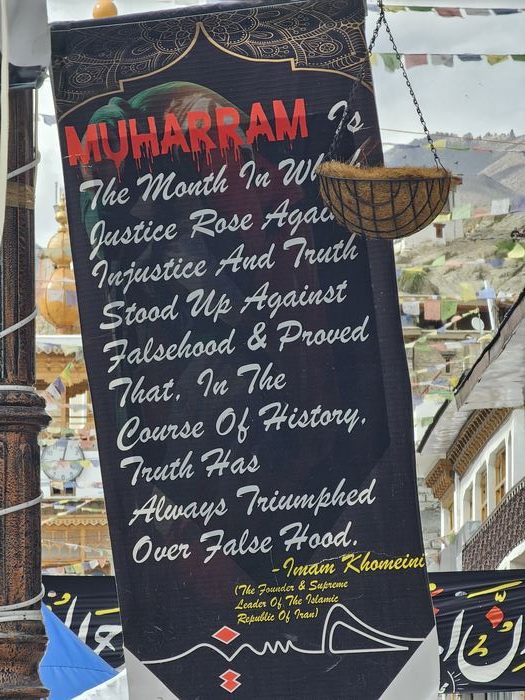 MUHARRAM Is
The Month In
Justice Rose
Injustice And Truth
Stood Up Against
Falsehood & Proved
That, In The
Course Of History,
Truth Has
Always Triumphed
Over False Hood.
-Imam Khomeini
(The Founder & Supreme
Leader Of The Islamic
Republic Of Iran)